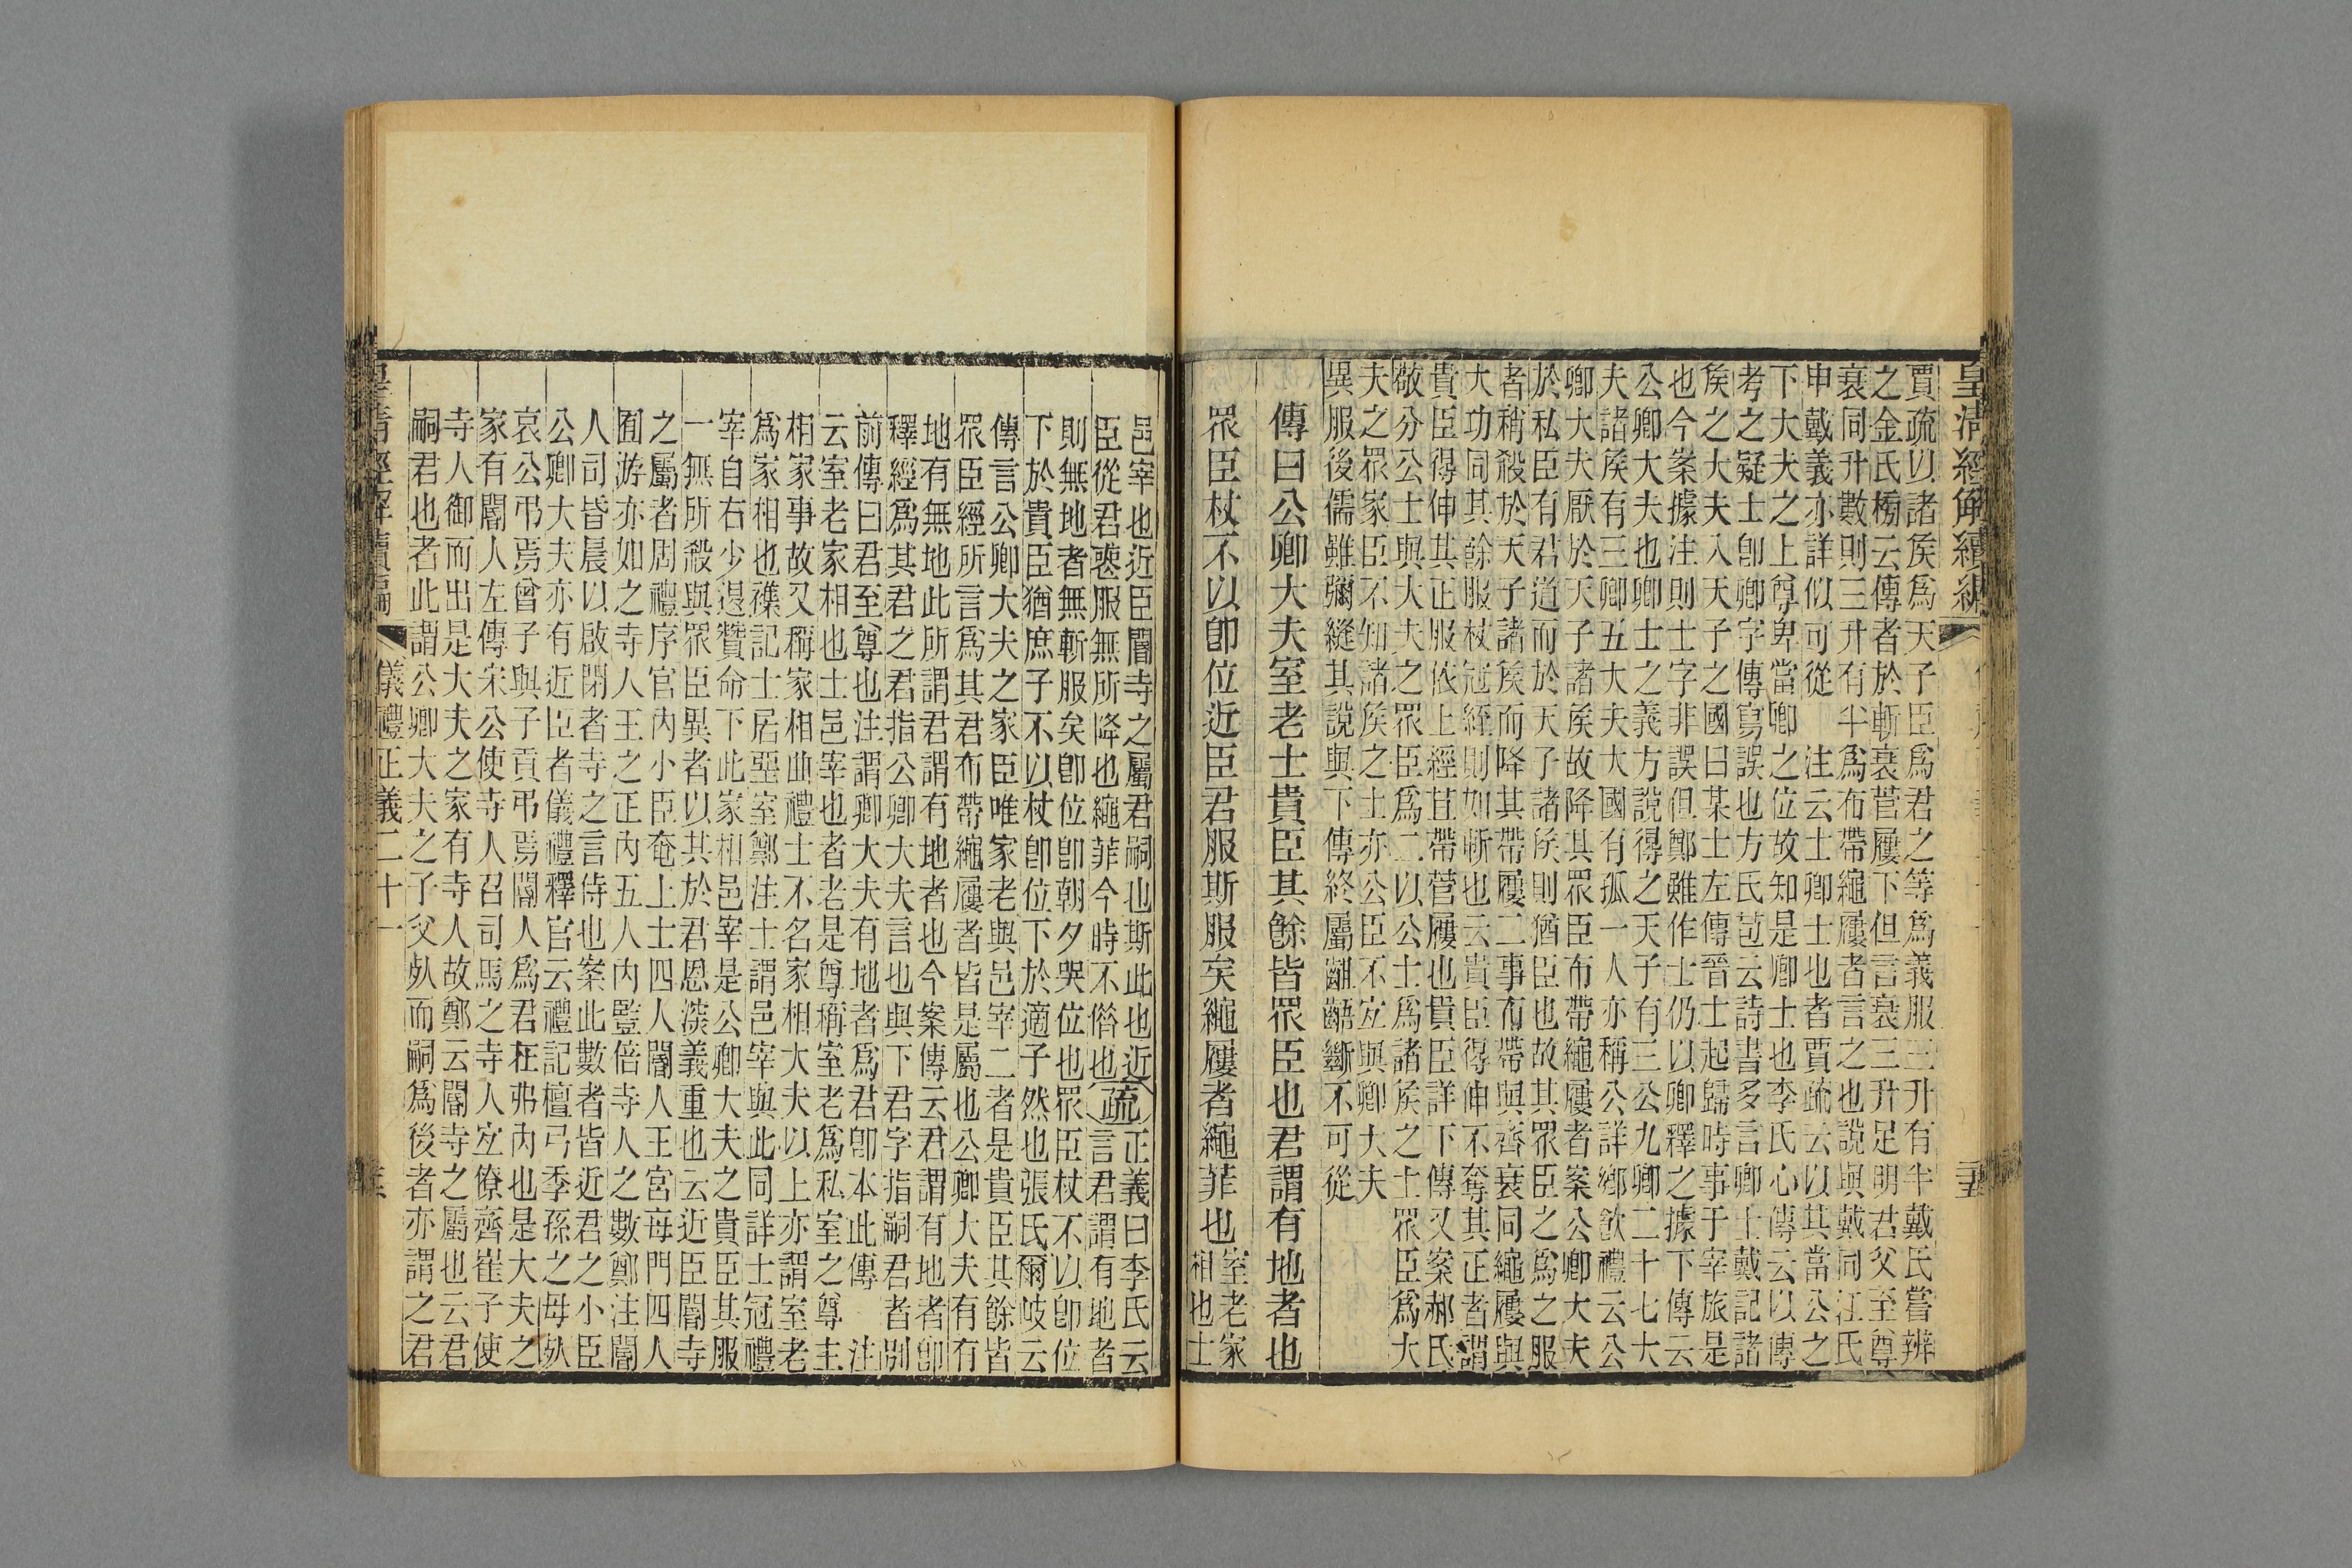 皇清經解續編
賈疏以諸矦爲天子臣爲君之等爲義服三升有半戴氏嘗辨
之金氏榜云傳者於斬衰菅屨下但言衰三升足明君父至尊
衰同升數則三升有半爲布帶繩屨者言之也說與戴同江氏
申戴義亦詳似可從　注云士卿士也者賈疏云以其當公之
下大夫之上尊卑當卿之位故知是卿士也李氏心傳云以傳
考之疑士卽卿字傳寫誤也方氏苞云詩書多言卿士戴記諸
矦之大夫入天子之國曰某士左傳晉士起歸時事于宰旅是
也今案據注則士字非誤但鄭雖作士仍以卿釋之據下傳云
公卿大夫也卿士之義方說得之天子有三公九卿二十七大
夫諸矦有三卿五大夫大國有孤一人亦稱公詳鄉飮禮云公
卿大夫厭於天子諸矦故降其眾臣布帶繩屨者案公卿大夫
於私臣有君道而於天子諸矦則猶臣也故其眾臣之爲之服
者稍殺於天子諸矦而降其帶屨二事布帶與齊衰同繩屨與
大功同其餘服杖冠絰則如斬也云貴臣得伸不奪其正者謂
貴臣得伸其正服依上經苴帶菅屨也貴臣詳下傳又案郝氏
敬分公士與大夫之眾臣爲二以公士爲諸矦之士眾臣爲大
夫之眾家臣不知諸矦之士亦公臣不宜與卿大夫
異服後儒雖彌縫其說與下傳終屬齟齬斷不可從
傳曰公卿大夫室老士貴臣其餘皆眾臣也君謂有地者也
眾臣杖不以卽位近臣君服斯服矣繩屨者繩菲也室老家
相也士
邑宰也近臣閽寺之屬君嗣也斯此也近
臣從君喪服無所降也繩菲今時不借也疏正義曰李氏云
言君謂有地者
則無地者無斬服矣卽位卽朝夕哭位也眾臣杖不以卽位
下於貴臣猶庶子不以杖卽位下於適子然也張氏爾岐云
傳言公卿大夫之家臣唯家老與邑宰二者是貴臣其餘皆
眾臣經所言爲其君布帶繩屨者皆是屬也公卿大夫有有
地有無地此所謂君謂有地者也今案傳云君謂有地者卽
釋經爲其君之君指公卿大夫言也與下君字指嗣君者別
前傳曰君至尊也注謂卿大夫有地者爲君卽本此傳　注
云室老家相也士邑宰也者老是尊稱室老爲私室之尊主
相家事故又稱家相曲禮士不名家相大夫以上亦謂室老
爲家相也襍記士居堊室鄭注士謂邑宰與此同詳士冠禮
宰自右少退贊命下此家相邑宰是公卿大夫之貴臣其服
一無所殺與眾臣異者以其於君恩深義重也云近臣閽寺
之屬者周禮序官內小臣奄上士四人閽人王宮每門四人
囿游亦如之寺人王之正內五人內豎倍寺人之數鄭注閽
人司昏晨以啟閉者寺之言侍也案此數者皆近君之小臣
公卿大夫亦有近臣者儀禮釋官云禮記檀弓季孫之母死
哀公弔焉曾子與子貢弔焉閽人爲君在弗內也是大夫之
家有閽人左傳宋公使寺人召司馬之寺人宜僚齊崔子使
寺人御而出是大夫之家有寺人故鄭云閽寺之屬也云君
嗣君也者此謂公卿大夫之子父死而嗣爲後者亦謂之君
儀禮正義二十一